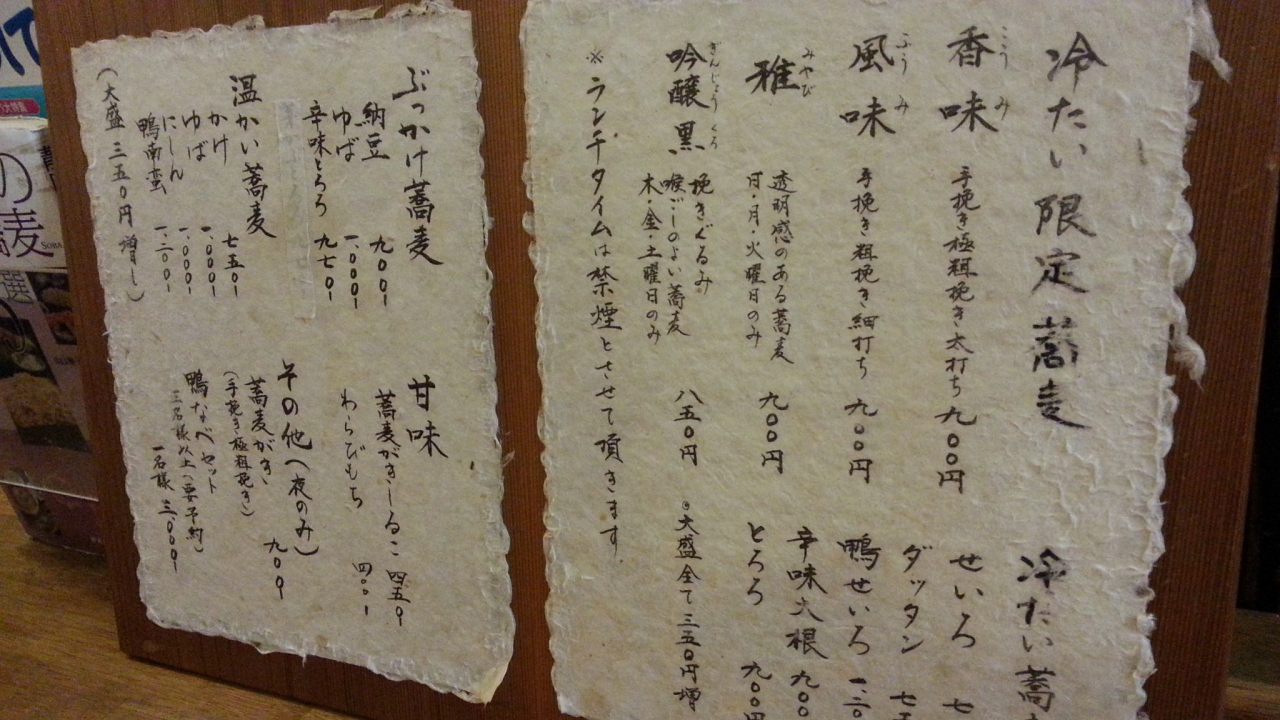 冷たい限定蕎麦
香味 こうみ 手挽き極粗挽き太打ち 九〇〇円
風味 ふうみ 手挽き粗挽き細打ち 九〇〇円
雅 みやび 透明感のある蕎麦
日・月・火曜日のみ 九〇〇円
吟醸黒 ぎんじょうくろ 挽きぐるみ
喉ごしのよい蕎麦
木・金・土曜日のみ 八五〇円
※ランチタイムは禁煙とさせて頂きます
冷たい蕎
せいろ 七
ダッタン 七五
鴨せいろ 一.二〇
辛味大根 九〇〇
とろろ 九〇〇円
。大盛全て三五〇円増
ぶっかけ蕎麦
納豆 九〇〇
ゆば 一.〇〇〇
辛味とろろ 九七〇
温かい蕎麦
かけ 七五〇
ゆば 一.〇〇〇
にしん 一.〇〇〇
鴨南蛮 一.二〇〇
(大盛 三五〇円増し)
甘味
蕎麦がきしるこ 四五〇
わらびもち 四〇〇
その他(夜のみ)
蕎麦がき 九〇〇
(手挽き極粗挽き)
鴨なべセット
三名様以上(要予約)
一名様 三.〇〇〇
の
麦
SOBA
選